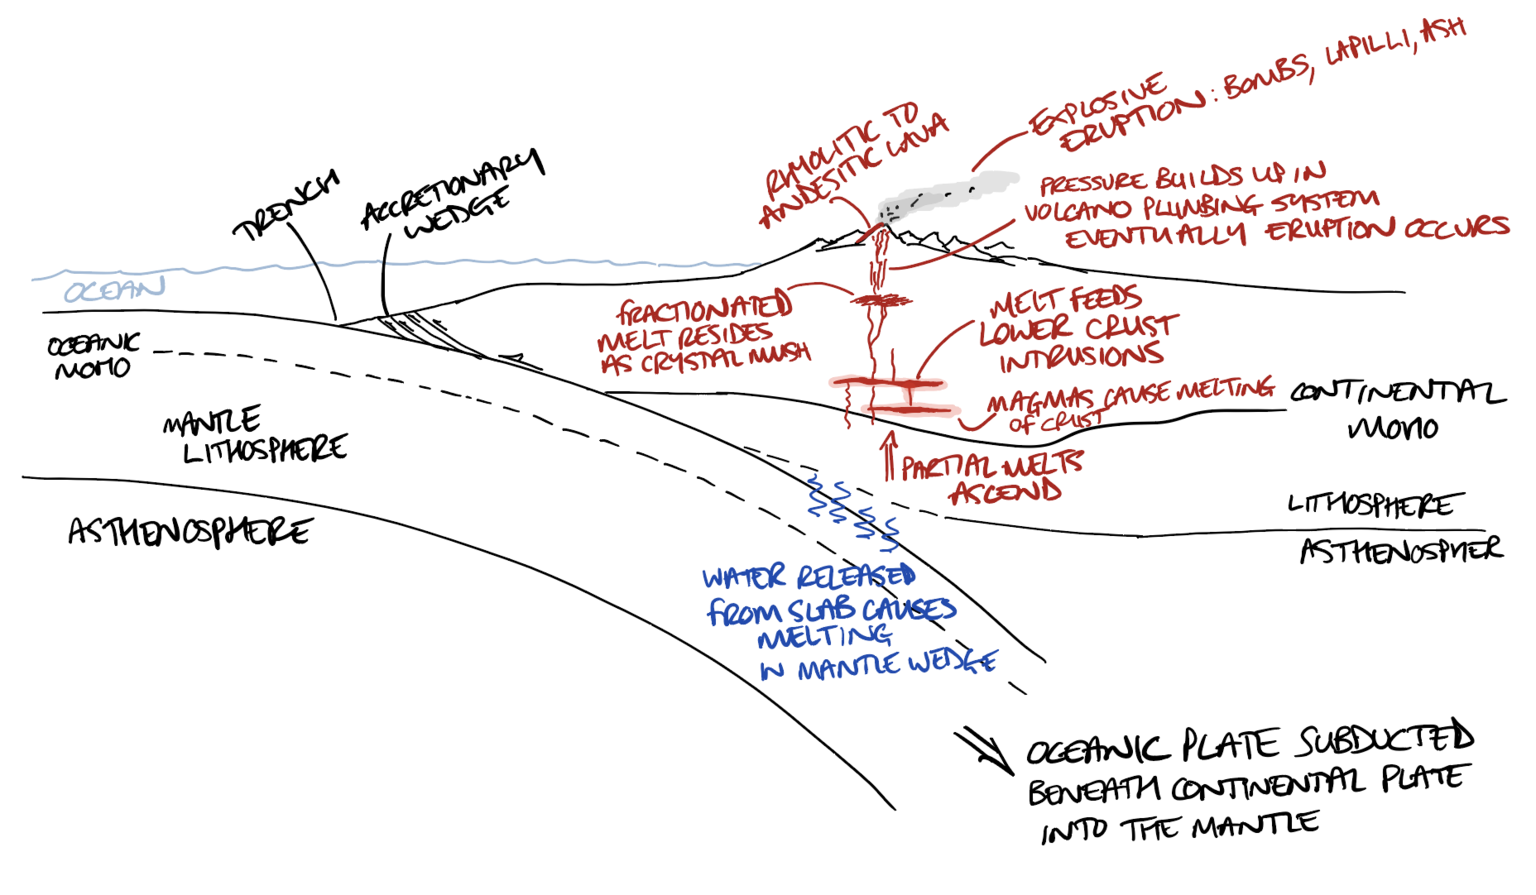 EXPLOSIVE
ERUPTION: BOMBS, LAPILLI, ASH
RHYOLITIC TO
ANDESITIC LAVA
PRESSURE BUILDS UP IN
VOLCANO PLUMBING SYSTEM
EVENTUALLY ERUPTION OCCURS
TRENCH
ACCRETIONARY
WEDGE
OCEAN
FRACTIONATED
MELT RESIDES
AS CRYSTAL MUSH
MELT FEEDS
LOWER CRUST
INTRUSIONS
OCEANIC
MOHO
MAGMAS CAUSE MELTING
OF CRUST
CONTINENTAL
MOHO
MANTLE
LITHOSPHERE
PARTIAL MELTS
ASCEND
LITHOSPHERE
ASTHENOSPHERE
ASTHENOSPHER
WATER RELEASED
FROM SLAB CAUSES
MELTING
IN MANTLE WEDGE
OCEANIC PLATE SUBDUCTED
BENEATH CONTINENTAL PLATE
INTO THE MANTLE